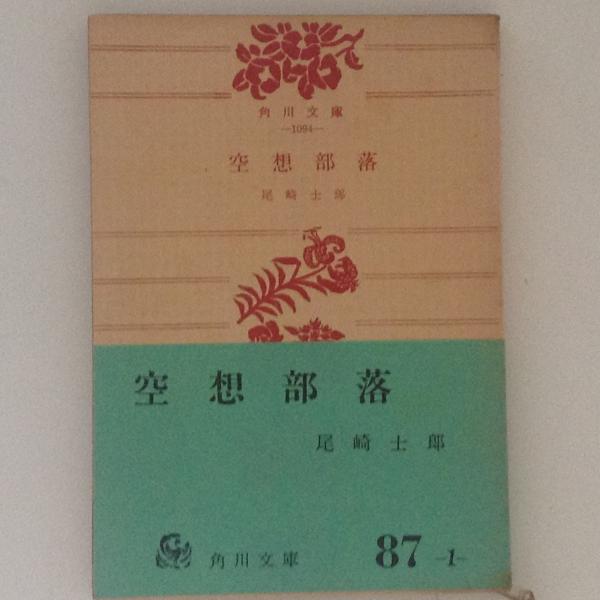 角川文庫
―1094―
空想部落
尾崎士郎
空想部落
尾崎士郎
角川文庫
87 ―1―